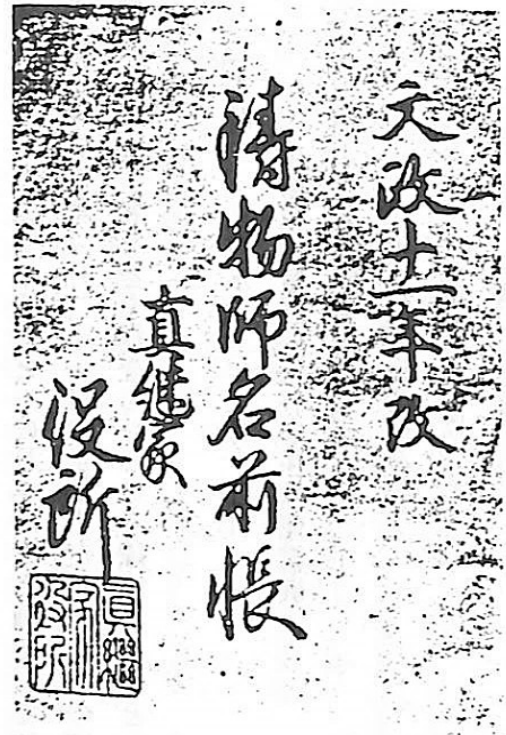 文政十一年改
鋳物師名前帳
真継家
役所